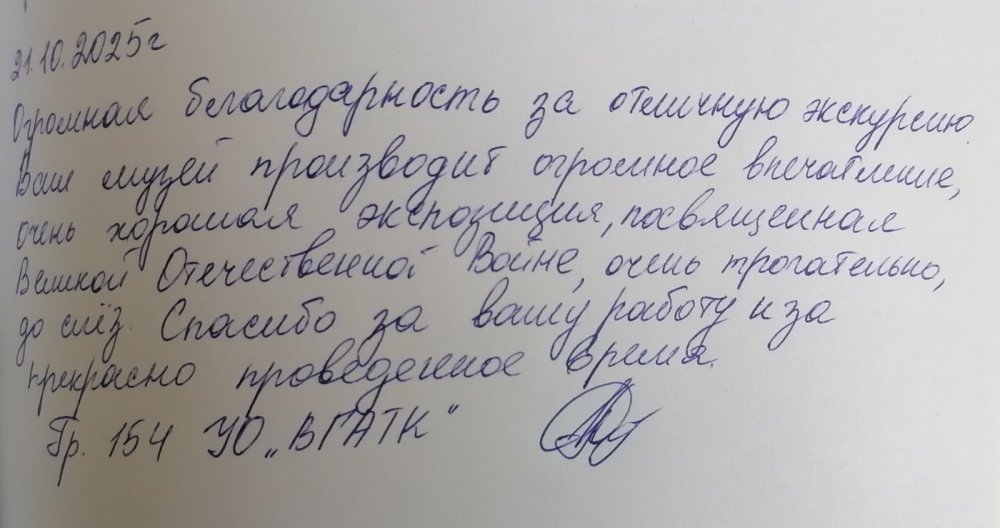 21.10.2025г
Огромная благодарность за отличную экскурсию.
Ваш музей производит огромное впечатление,
очень хорошая экспозиция, посвященная
Великой Отечественной Войне, очень трогательно,
до слёз. Спасибо за вашу работу и за
прекрасно проведенное время.
Гр. 154 УО „ВГАТК"